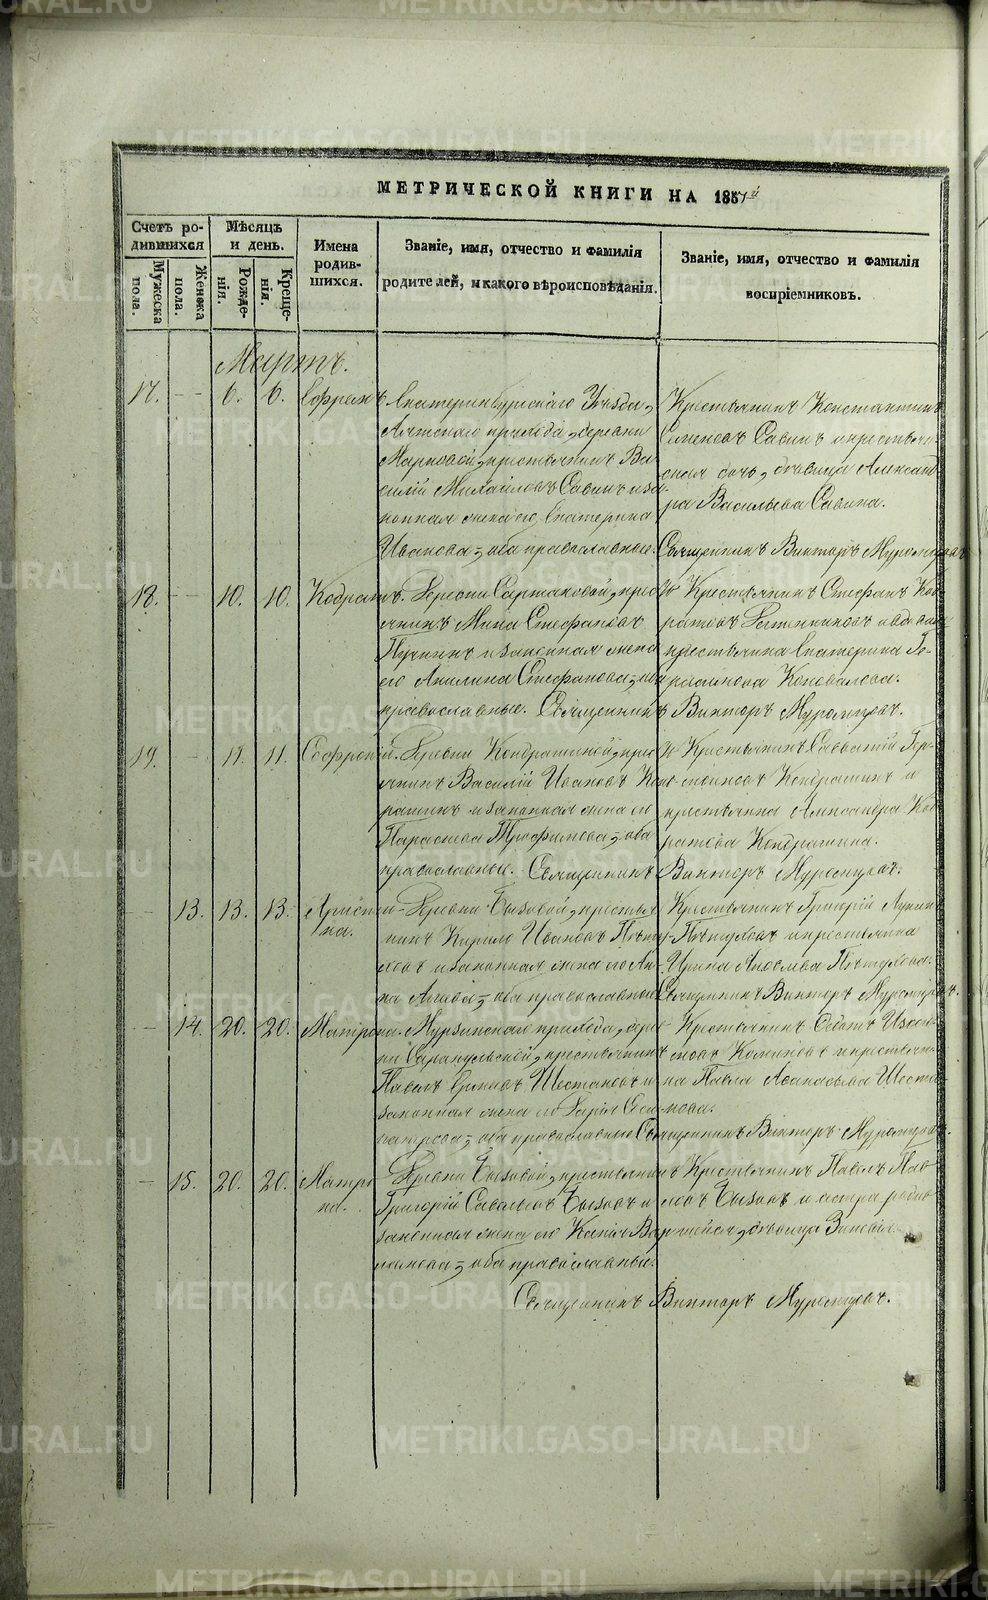 МЕТРИЧЕСКОЙ КНИГИ НА 1857й
Счетъ родившихся
Мужеска пола.
Женска пола.
Мѣсяцъ и день.
Рожденія.
Крещенія.
Имена родившихся.
Званіе, имя, отчество и фамилія
родителей, и какого вѣроисповѣданія.
Званіе, имя, отчество и фамилія
воспріемниковъ.
Мартъ.
17. 6. 6. Ефремъ Екатеринбургскаго Уѣзда,
прихода, деревни
Марковой, крестьянинъ Ва-
силій Михайловъ Савинъ и за-
конная жена его Екатерина
Иванова, оба православные.
Крестьянинъ Константинъ
Савинъ и крестьян-
ская дочь, дѣвица Александ-
ра Васильева Савина.
Священникъ Викторъ Муромцевъ
18. 10. 10. Кодратъ. Деревни крес
янинъ Мина Стефановъ
Пучкинъ и законная жена
его Акилина Стефанова, оба
православные.
Крестьянинъ Стефанъ Код
ратовъ и вдова
крестьянка Екатерина Ге-
расимова Коновалова.
Священникъ Викторъ Муромцевъ.
19. 11. 11. Софроній. Деревни Кондрашиной, крес
янинъ Василій Ивановъ Конд
рашинъ и законная жена его
Параскева Трофимова, оба
православные.
Крестьянинъ Савватій
Кондрашинъ и
крестьянка Александра Код
ратова Кондрашина.
Священникъ Викторъ Муромцевъ.
13. 13. 13. Деревни Бызовой, крестья
нинъ Кирило Ивановъ Пѣту
ховъ и законная жена его Ан-
на оба православные
Крестьянинъ Григорій
Пѣтуховъ и крестьянка
Ирина Пѣтухова.
Священникъ Викторъ Муромцевъ.
14. 20. 20. Матрона. Мурзинскаго прихода, дерев
ни Сарапульской, крестьянинъ
Павелъ Шестаковъ и
законная жена его Дарія
оба православные
Крестьянинъ Федотъ
и крестьян-
ка Павла Аѳанасьева Шеста
кова.
Священникъ Викторъ Муромцевъ.
15. 20. 20. Матро
на.
Деревни Бызовой, крестьянинъ
Григорій Савельевъ Бызовъ и
законная жена его
оба православные.
Крестьянинъ Павелъ Пав-
ловъ Бызовъ и сестра родив-
шейся, дѣвица Зиновія.
Священникъ Викторъ Муромцевъ.
METRIKI.GASO-URAL.RU